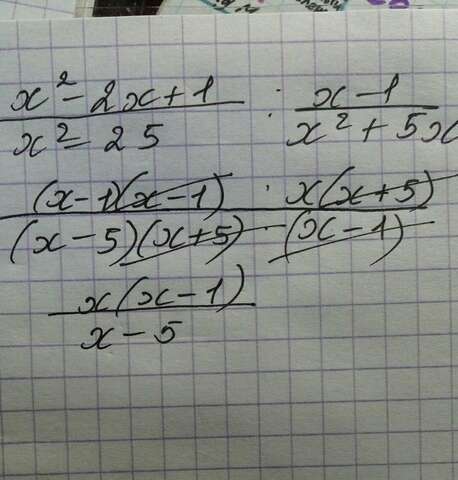 x² - 2x + 1 / x² - 25 : x - 1 / x² + 5x
(x - 1)(x - 1) · x(x + 5) / (x - 5)(x + 5) (x - 1)
x(x - 1) / x - 5